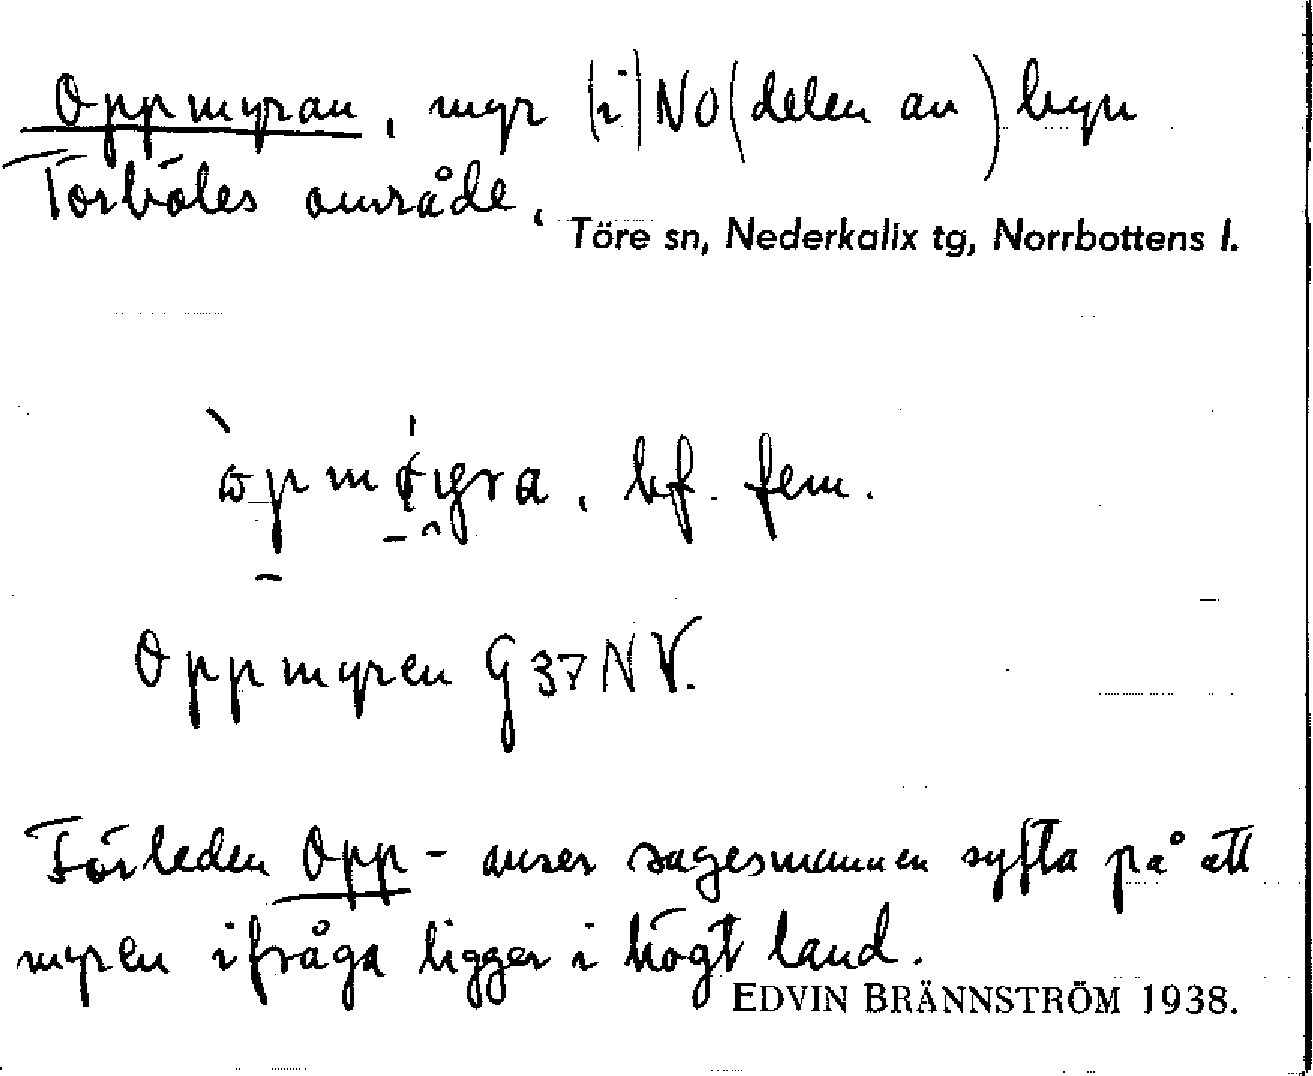 Oppmyran, myr (i) NO (delen av) byn
Törböles område.
Töre sn, Nederkalix tg, Norrbottens l.
bf. fem.
Oppmyren G 37 NV.
Förleden Opp- anser sagesmannen syfta på att
myren ifråga ligger i högt land.
EDVIN BRÄNNSTRÖM 1938.